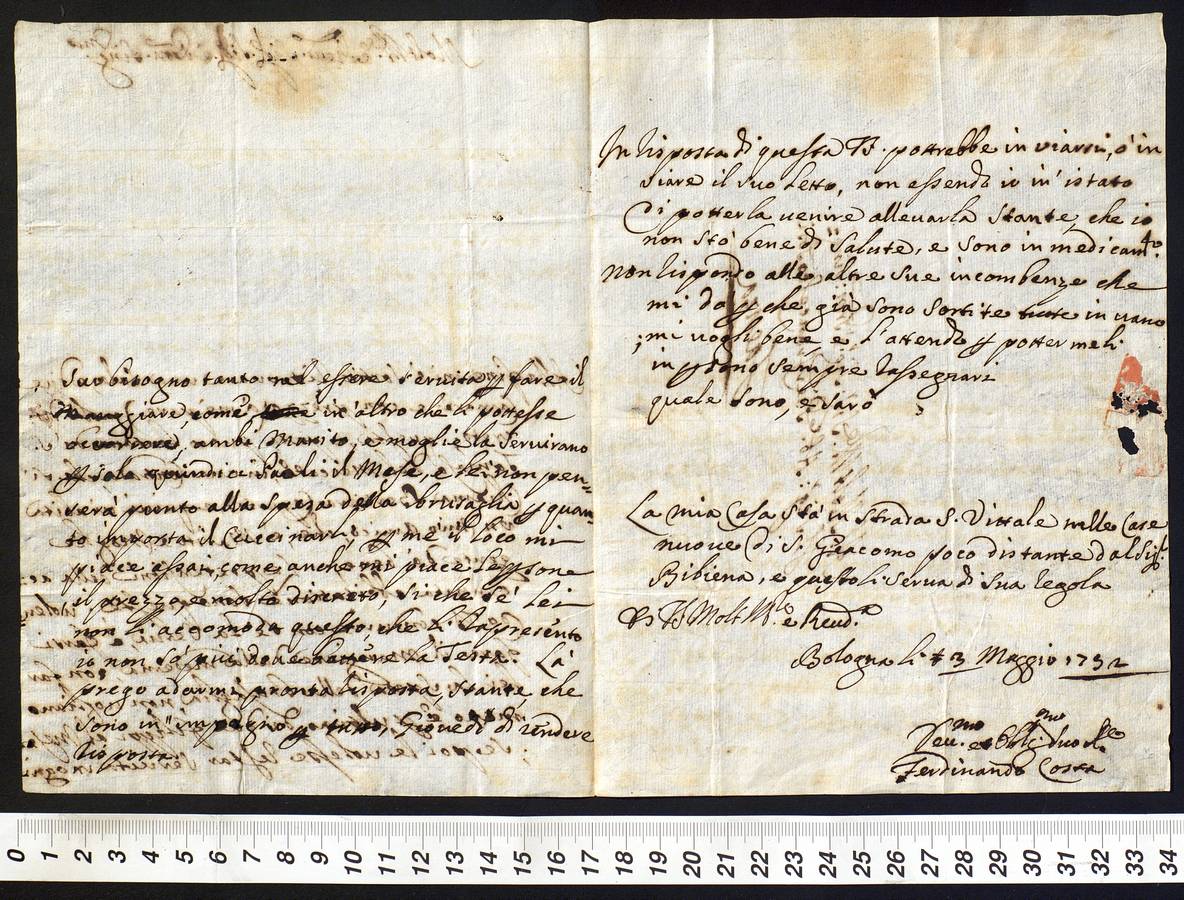 suo bisogno tanto nel essere servita p fare il
mangiare, come in altro che li pottesse
occorrere, ambi Marito, e moglie la servirano
p soli quindici Paoli il Mese, e lei non pen-
serà punto alla spesa della
tò importa il Cuccinarli, p me il loco mi
piace assai, come anche mi piace le psone
il prezzo e molto discreto, si che se Lei
non li accomoda questo, che li rapresento
io non sò più dove battere la Testa. La
prego a darmi pronta risposta, stante, che
sono in impegno p tutto Giovedì di rendere
risposta.
In risposta di questa VS. pottrebbe in viarmi, ò in
viare il suo Letto, non essendo io in istato
di potterla venire allevarla stante, che io
non stò bene di salute, e sono in medicam.to
non rispondo alle altre sue incombenze che
mi da p che già sono sortite tutte in vano
mi vogli bene, e l'attendo p potter meli
in psona sempre rassegnarmi
quale sono, e sarò
La mia Casa stà in strada S. Vittale nelle Case
nuove di S. Giacomo poco distante dal Sig.r
Bibiena, e questo li serva di sua regola
Di VS Molt Ill.e e Reud.a
Bologna li 3 Maggio 1732
Deu.mo et Obl.mo Servo
Ferdinando Costa
0 1 2 3 4 5 6 7 8 9 10 11 12 13 14 15 16 17 18 19 20 21 22 23 24 25 26 27 28 29 30 31 32 33 34